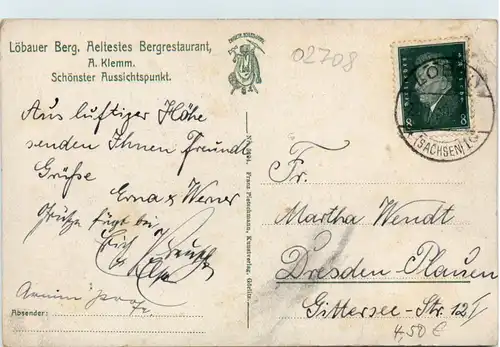 Löbauer Berg. Aeltestes Bergrestaurant,
A. Klemm.
Schönster Aussichtspunkt.
02708
8 8
(SACHSEN)
Aus luftiger Höhe
senden Ihnen Freundl
Grüße
Erna & Werner
Grüße fügt bei
Absender:
Franz Pietschmann, Kunstverlag, Görlitz.
Fr.
Martha Wendt
Dresden-Plauen
Gittersee-Str. 12 I
4,50 €